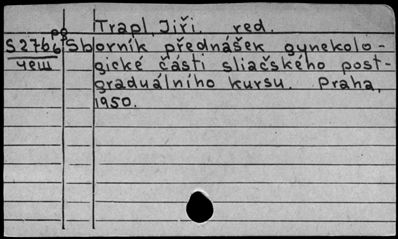 Trapl, Jiří. red.
pg
S2766 Sborník přednášek gynekolo-
чеш gické části sliačského post-
graduálního kursu. Praha,
1950.